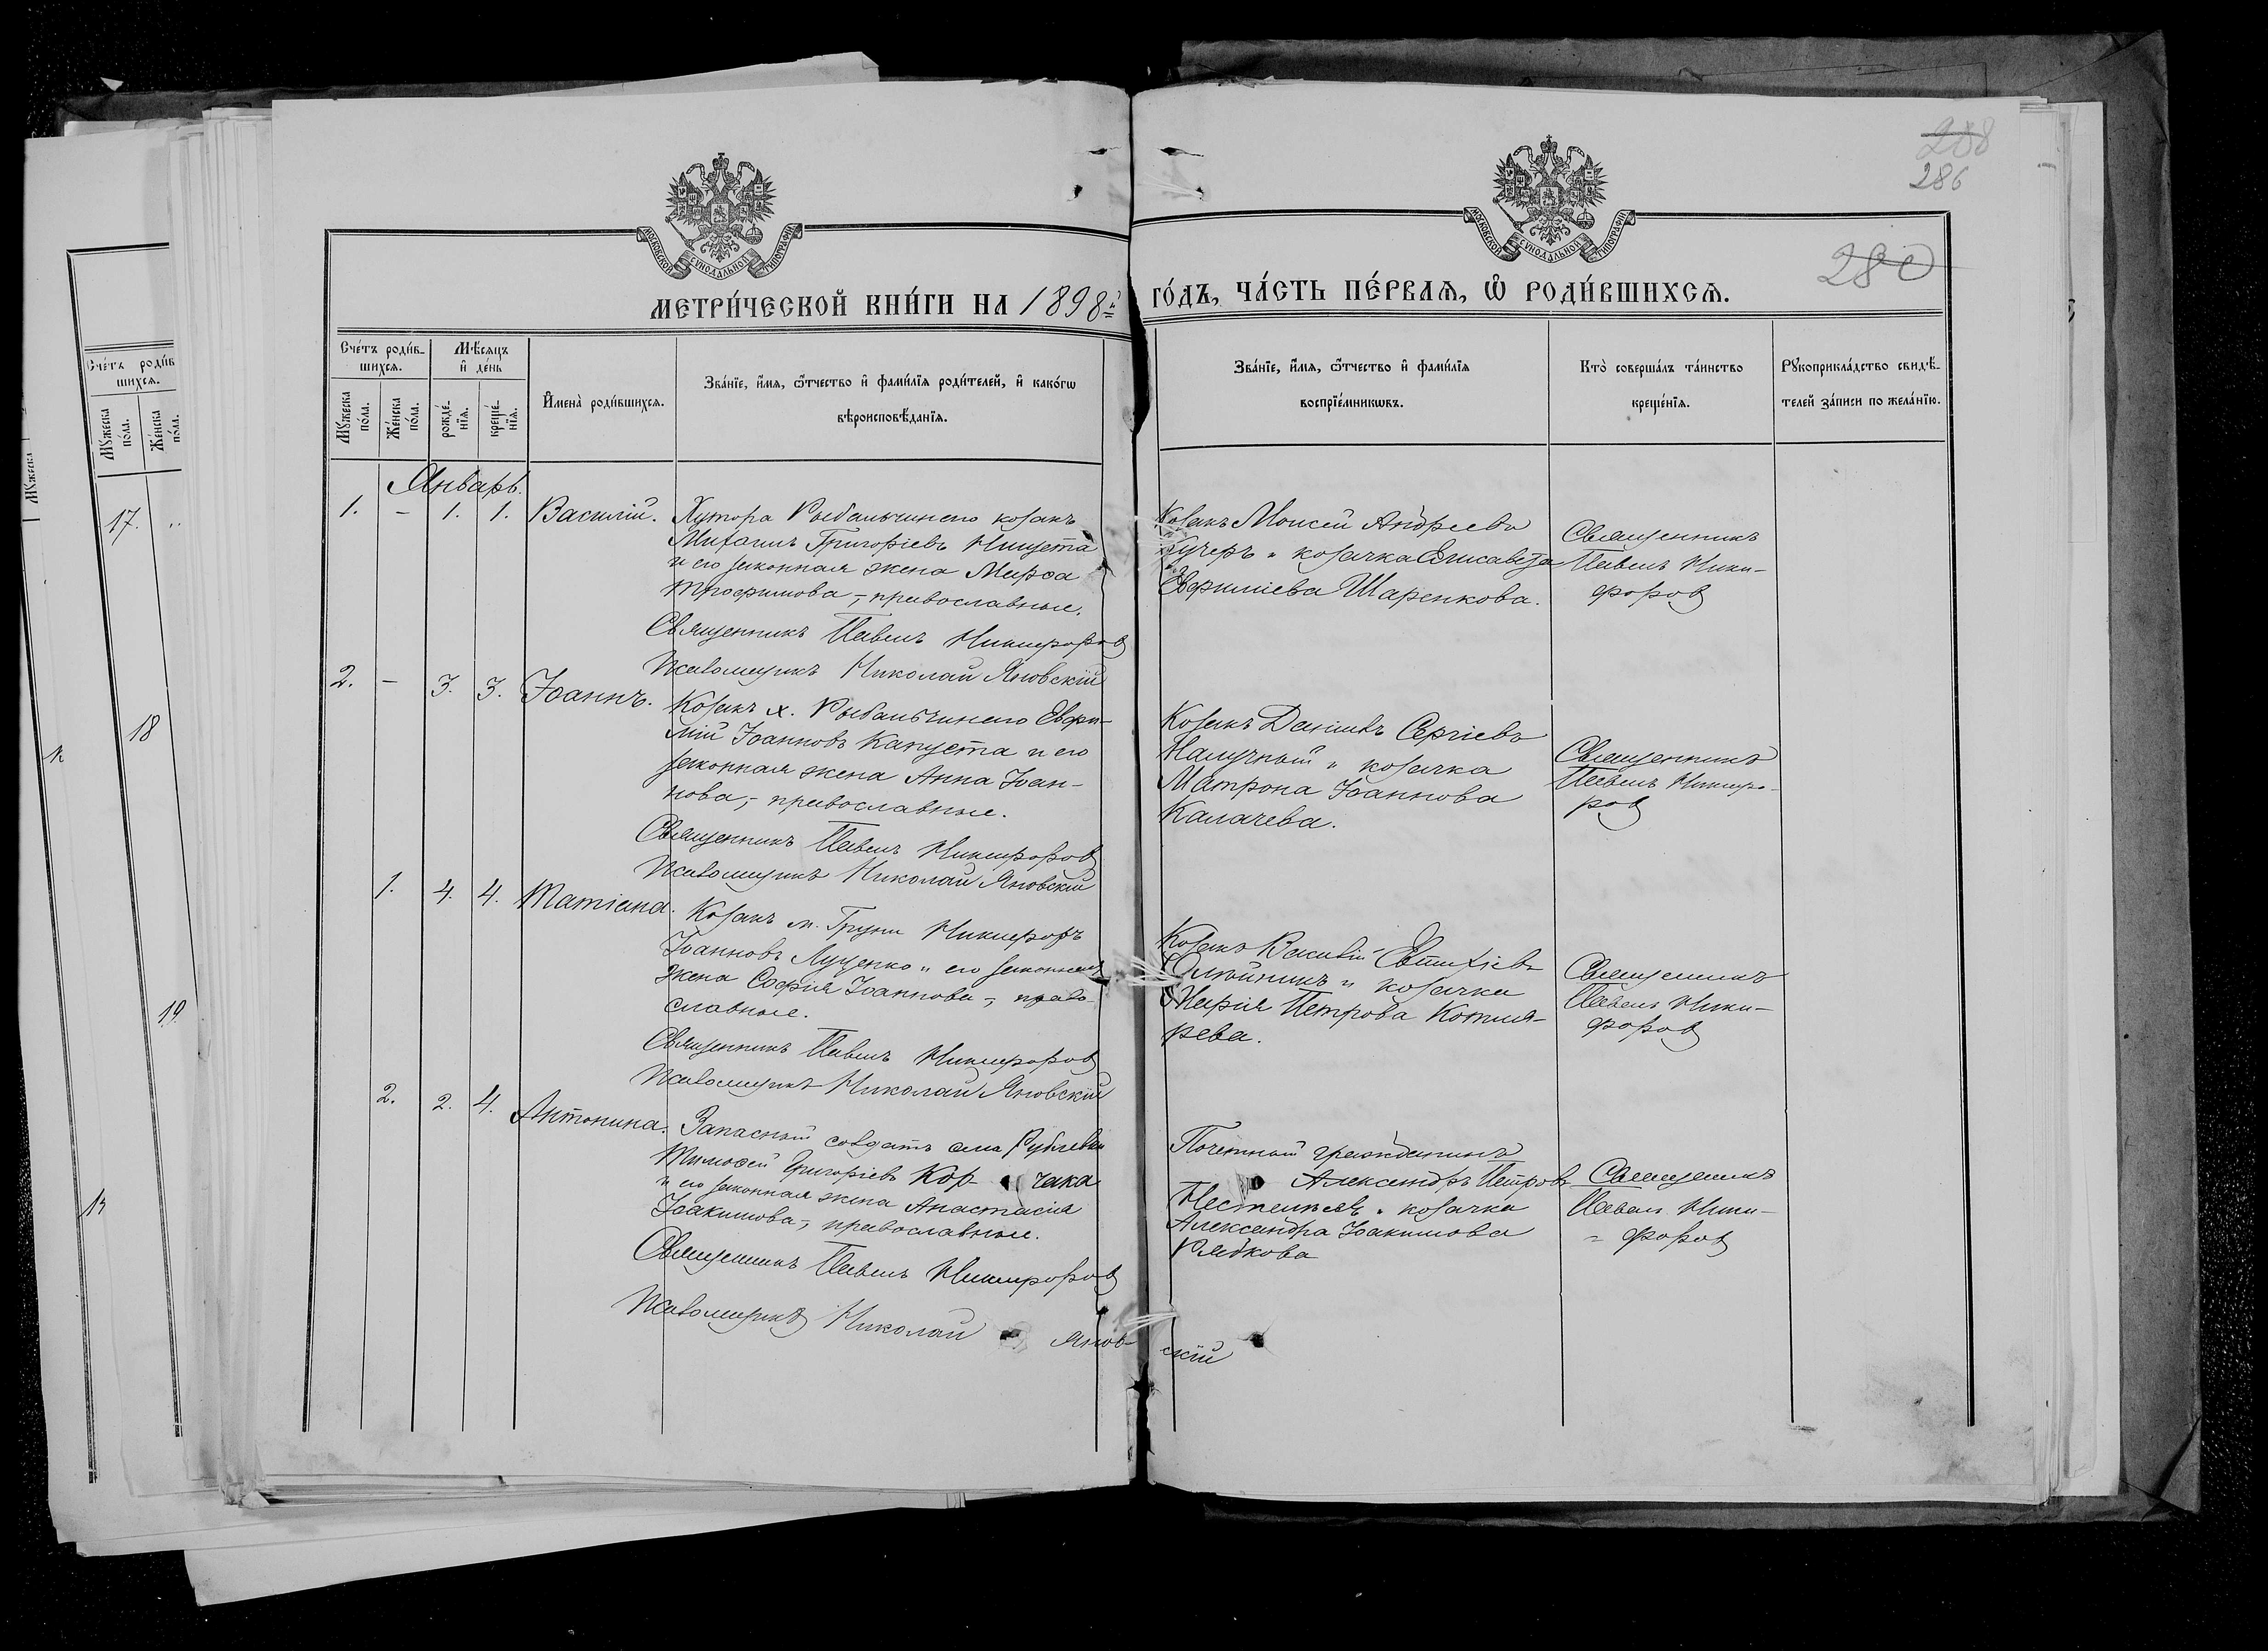 288
286
280
МОСКОВСКОЙ СѴНОДАЛЬНОЙ ТИПОГРАФІИ
МОСКОВСКОЙ СѴНОДАЛЬНОЙ ТИПОГРАФІИ
МЕТРИ́ЧЕСКОЙ КНИ́ГИ НА 1898й ГО́ДЪ, ЧА́СТЬ ПЕ́РВАЯ, Ѿ РОДИ́ВШИХСЯ.
Сче́тъ роди́в-
шихся.
Мѣ́сяцъ
и҆ де́нь
Мꙋ́жеска
по́ла.
Же́нска
по́ла.
рожде́-
нїя.
креще́-
нїя.
И҆мена̀ роди́вшихся.
Зва́нїе, и҆́мя, ѻ҆́тчество и҆ фамѝлїя роди́телей, и҆ како́гѡ
вѣроисповѣ́данїя.
Зва́нїе, и҆́мя, ѻ҆́тчество и҆ фами́лїя
воспрїе́мникѡвъ.
Кто̀ соверша́лъ та́инство
креще́нїя.
Рꙋкоприкла́дство свидѣ́-
телей за́писи по жела́нїю.
Январь.
1. - 1. 1. Василій.
Хутора Рыбальчинего козакъ
Михаилъ Григоріевъ Нищета
и его законная жена Марѳа
Трофимова, - православные.
Священникъ Павелъ Никифоров
Псаломщикъ Николай Яновскій
Козакъ Моисей Андреевъ
Кучеръ и козачка Елисавета
Евфиміева Шаренкова.
Священникъ
Павелъ Ники-
форов
2. - 3. 3. Іоаннъ.
Козакъ х. Рыбальчинего Евфи-
мій Іоанновъ Капуста и его
законная жена Анна Іоан-
нова, - православные.
Священникъ Павелъ Никифоров
Псаломщикъ Николай Яновскій
Козакъ Даніилъ Сергіевъ
и козачка
Матрона Іоаннова
Калачева.
Священникъ
Павелъ Никифо-
ров
1. 4. 4. Татіана.
Козакъ м. Груни Никифоръ
Іоанновъ Луценко и его законная
жена Софія Іоаннова, - право-
славные.
Священникъ Павелъ Никифоров
Псаломщикъ Николай Яновскій
Козакъ Василій Евтихіевъ
Олейникъ и козачка
Марія Петрова Котля-
рева.
Священникъ
Павелъ Ники-
форов
2. 2. 4. Антонина.
Запасный солдатъ села Рублевки
Тимоѳей Григоріевъ Кор- чака
и его законная жена Анастасія
Іоакимова, - православные.
Священникъ Павелъ Никифоров
Псаломщикъ Николай Янов- скій
Почетный гражданинъ
Александръ Петровъ
и козачка
Александра Іоакимова
Рядкова
Священникъ
Павелъ Ники-
= форов
Сче́тъ роди́в
шихся.
Мꙋ́жеска
по́ла.
Же́нска
по́ла.
Мꙋ́жеска
17. "
18
19